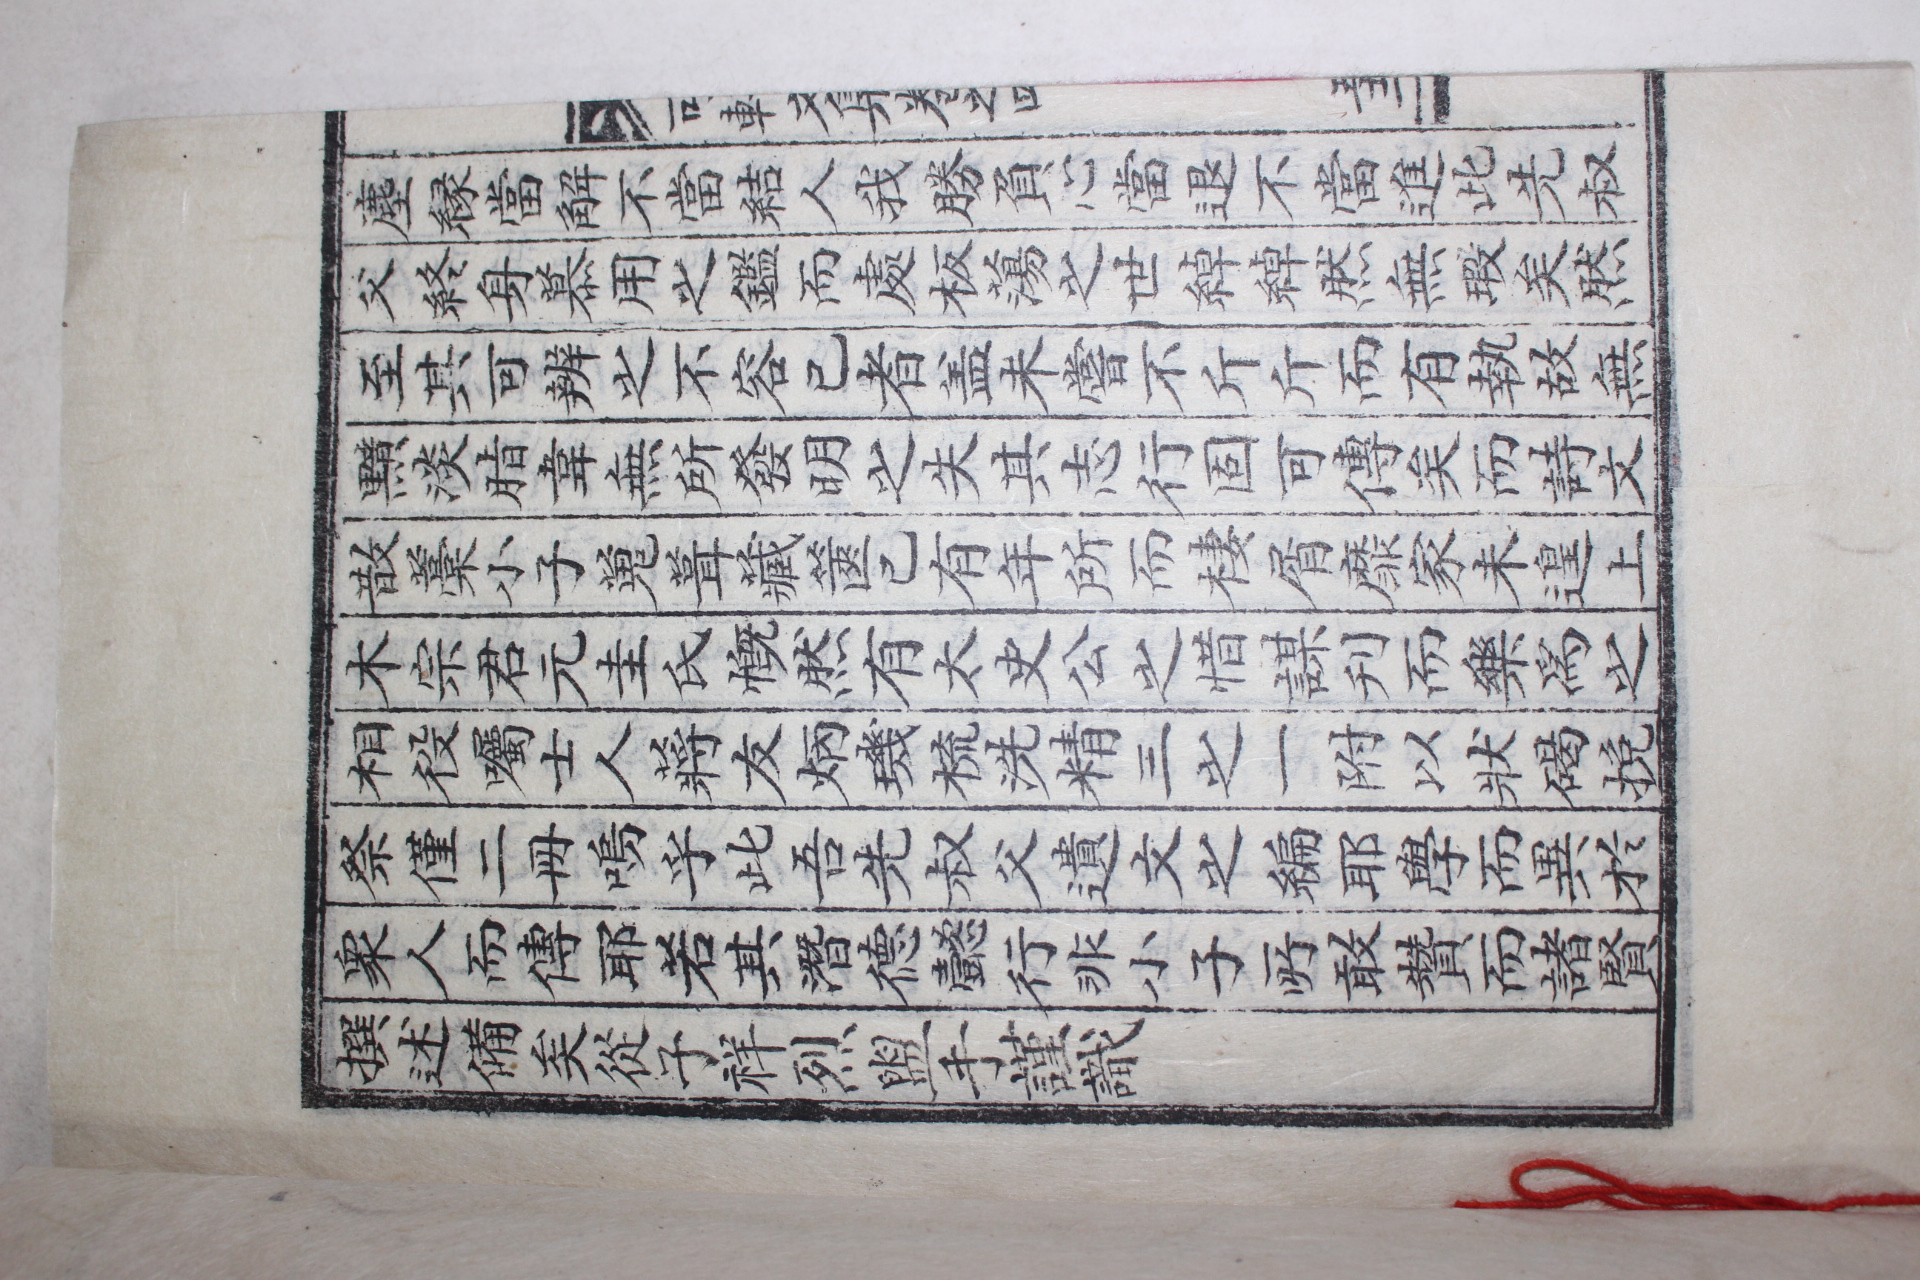 塵緣當解不當結人我勝負心當退不當進此先叔
父終身慕用之鑑而處板蕩之世綽綽然無瑕矣然
至其可辨之不容已者盖未嘗不斤斤而有執故無
黯淡脂韋無所發明之失其志行固可傳矣而詩文
散藁小子蒐葺藏篋已有年所而棲屑靡家未遑上
木宗君元圭氏慨然有太史公之惜謀刋而樂爲之
相役囑士人蔣友炳璣梳洗精三之一附以狀碣挽
祭僅二冊嗚乎此吾先叔父遺文之編耶學而異於
衆人而傳耶若其潛德懿行非小子所敢贊而諸賢
撰述備矣從子祥烈盥手謹識